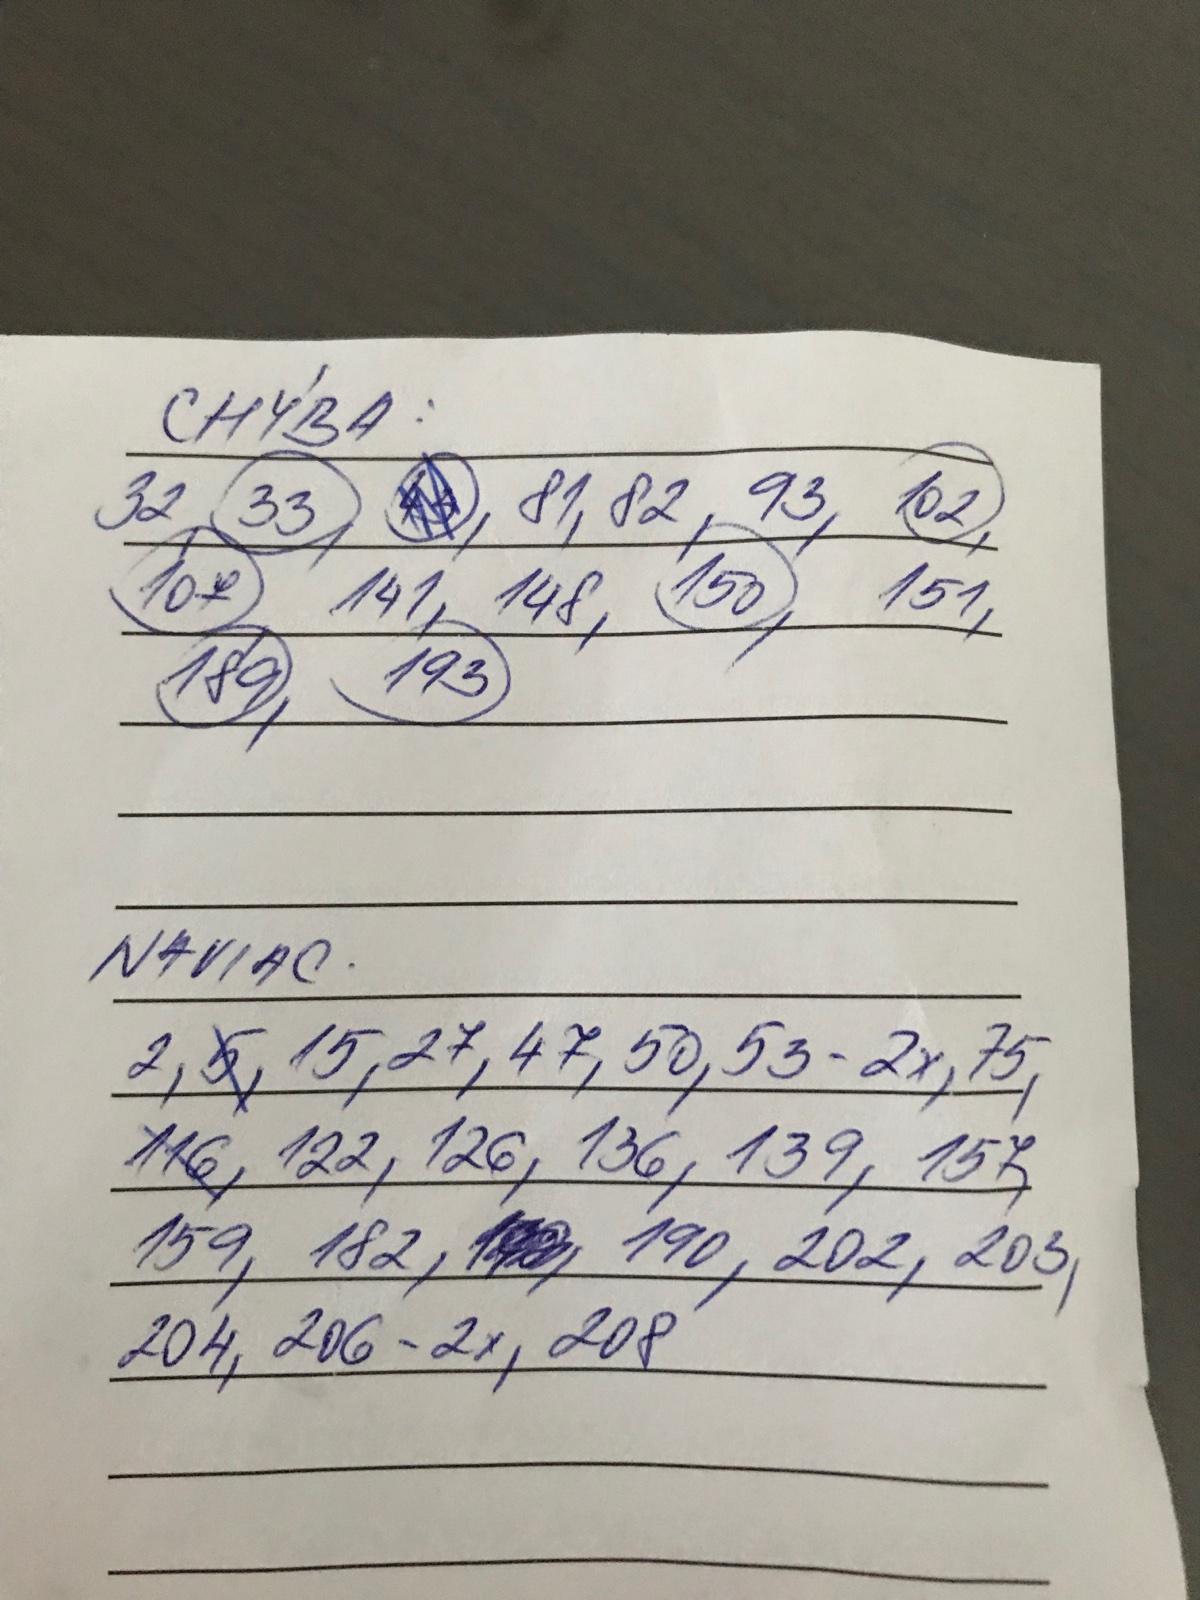 CHÝBA:
32, 33, 81, 82, 93, 102,
107, 141, 148, 150, 151,
189, 193
NAVIAC.
2, 5, 15, 27, 47, 50, 53 - 2x, 75,
116, 122, 126, 136, 139, 157,
159, 182, 190, 202, 203,
204, 206 - 2x, 208